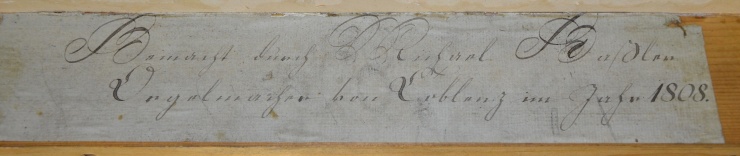 Gemacht durch Michael Haßler
Orgelmacher von Coblenz im Jahr 1808.